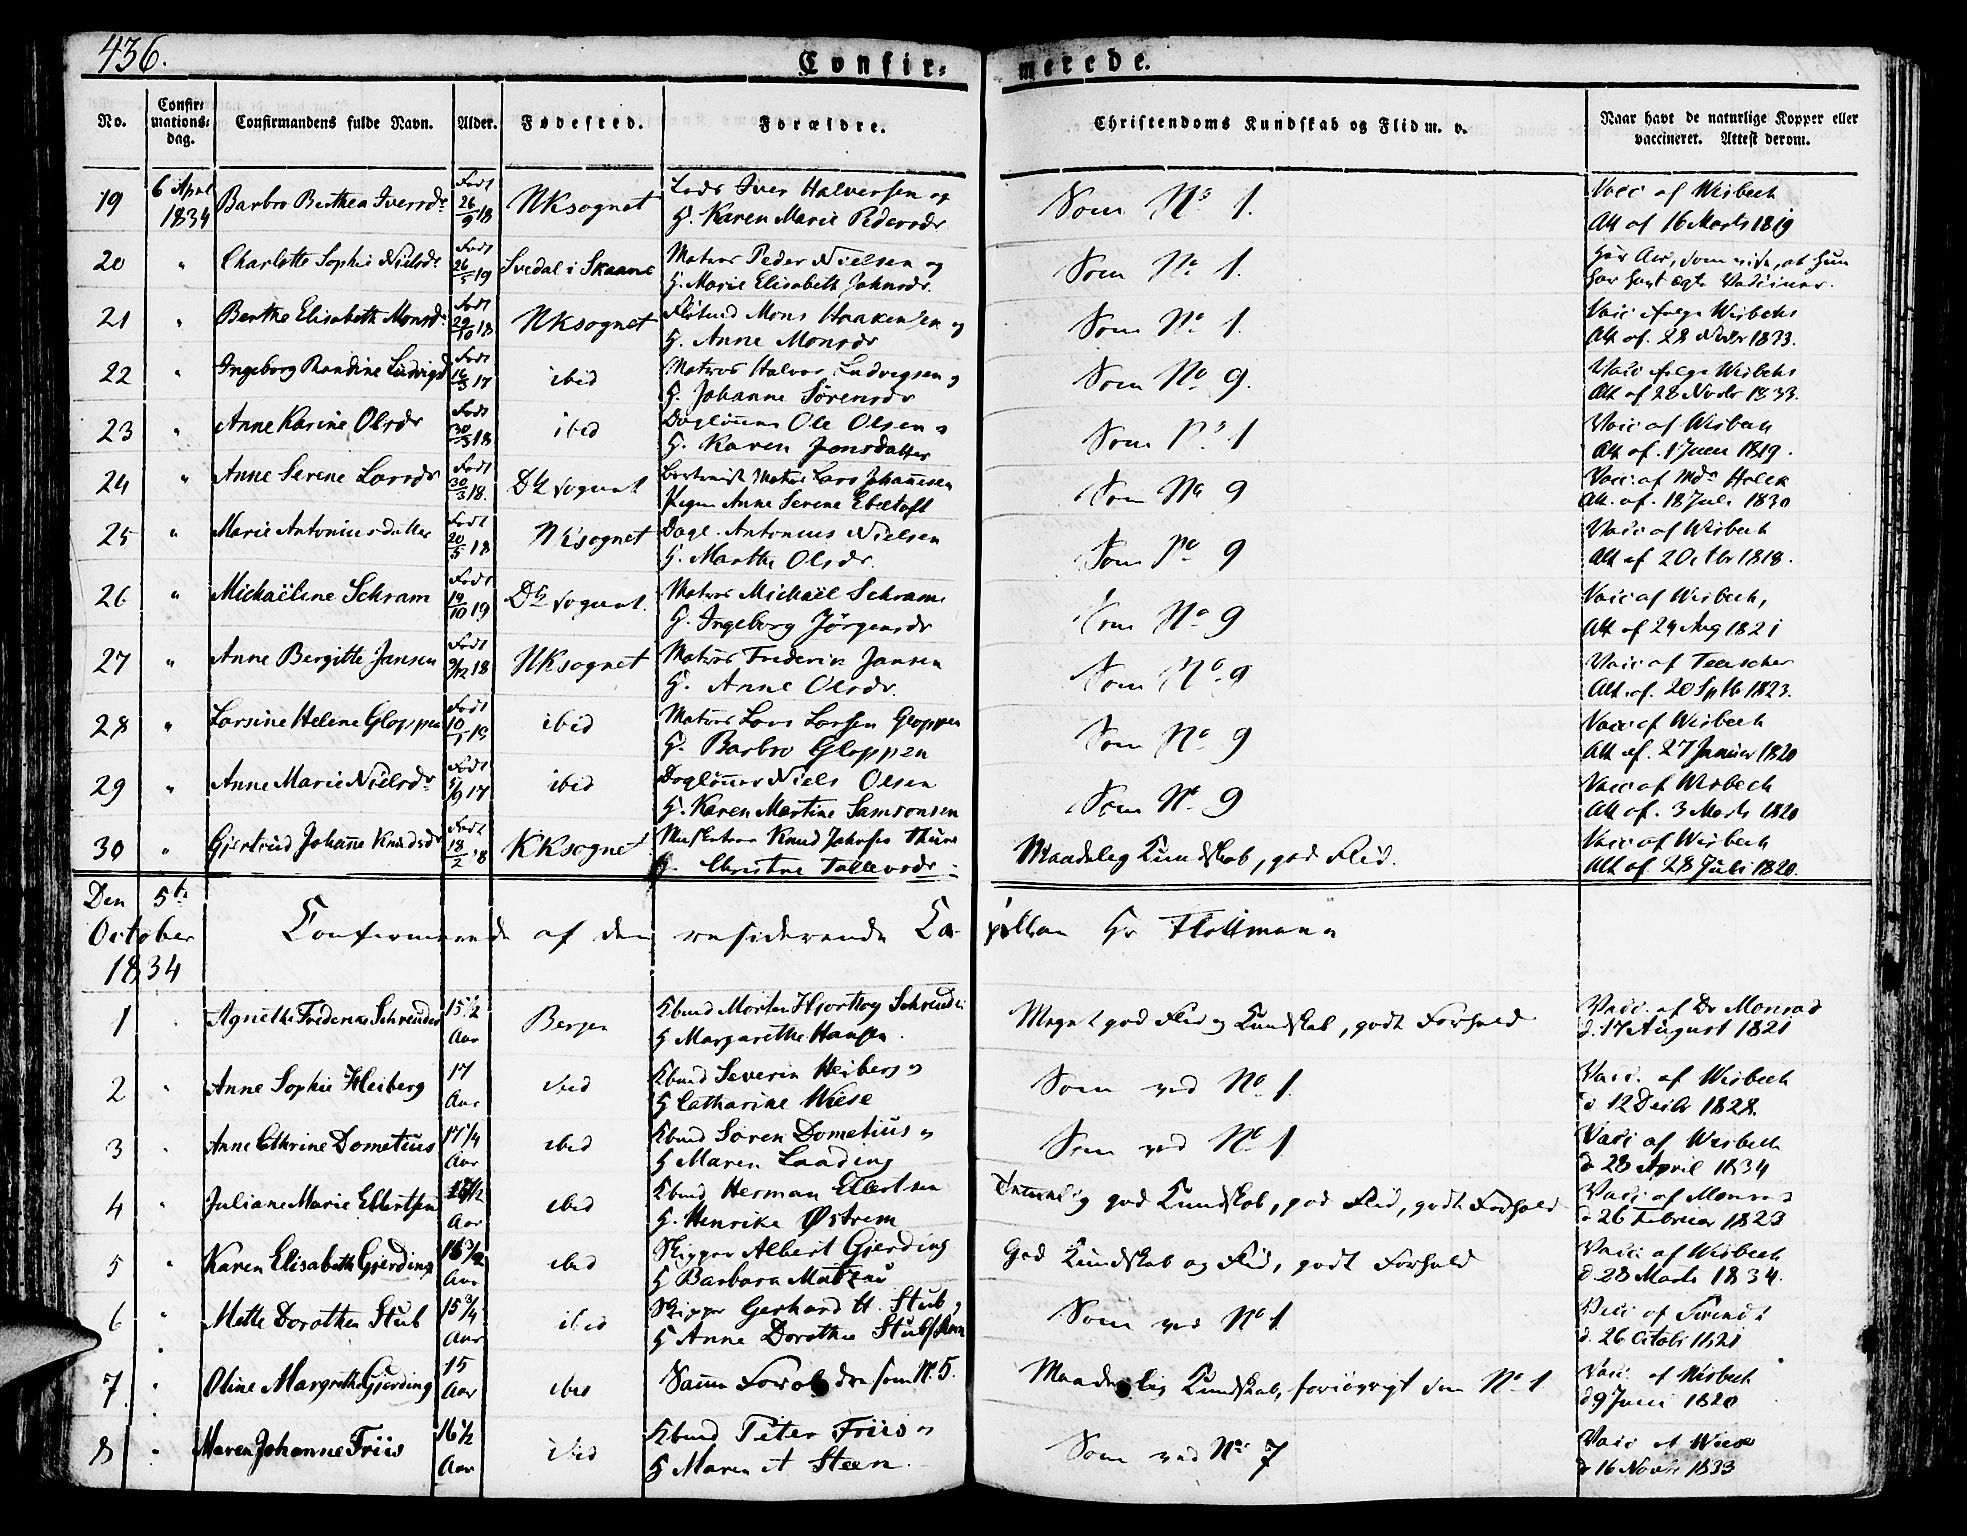 436.
Confir-
merede.
No.
Confir-
mations-
dag.
Confirmandens fulde Navn.
Alder.
Fødested.
Forældre.
Christendoms Kundskab og Flid m. v.
Naar havt de naturlige Kopper eller
vaccineret. Attest derom.
19 6 April 1834 Barbro Berthea Iversdr Født 26/9 18 NKsognet Iver Halversen og
G. Karen Marie Pedersdr
Som No 1.
Vacc af Wisbech
Att af 16 Marts 1819
20 " Charlotte Sophie Nielsdr Født 26/5 19 Svedal i Skaane Matros Peder Nielsen og
G. Marie Elisabeth Jahnsdr.
Som No 1.
har havt ægte Vacciner.
21 " Berthe Elisabeth Monsdr Født 29/10 18 NKsognet Mons Haakensen og
G. Anne Monsdr
Som No 1.
Vacc Wisbechs
Att af. 28 Novbr 1833.
22 " Ingeborg Randine Ludvigsd Født 16/3 17 ibid Matros Halvor Ludvigsen og
G. Johanne Sørensdr
Som No 9.
Vacc Wisbechs
Att af 28 Novbr 1833.
23 " Anne Karine Olsdr Født 30/3 18 ibid Dagløner Ole Olsen og
G. Karen Jonsdatter
Som No 1
Vacc af Wisbech
Att af. 1 Juni 1819.
24 " Anne Serene Larsdr Født 30/3 18. Dk sognet Matros Lars Johannesen
Pigen Anne Serene Ebeltoft
Som No 9
Vacc af Holck
Att. af. 18 Juli 1830
25 " Marie Antoniusdatter Født 20/5 18 NKsognet Dagl. Antonius Nielsen
G. Marthe Olsdr.
Som No 9
Vacc af Wisbech
Att af 2 Octbr 1818.
26 " Michaëlene Schram Født 19/10 19 Dk sognet. Matros Michaël Schram
G. Ingeborg Jörgensdr
Som No 9
Vacc af Wisbech,
Att af 24 Aug 1821
27 " Anne Bergitte Jansen Født 9/12 18 NKsognet Matros Frederik Jansen
G. Anne Olsdr.
Som No 9
Vacc af Teascher
Att. af. 20 Sptb 1823.
28 " Larsine Helene Gloppen Født 10/1 19 ibid Matros Lars Larsen Gloppen
G. Barbro Gloppen
Som No 9
Vacc af Wisbech
Att af. 27 Januar 1820
29 " Anne Marie Nielsdr Født 5/9 17 ibid Dagløner Niels Olsen
G. Karen Martine Samsonsen
Som No 9
Vacc af Wisbech
Att af. 3 Marts 1820
30 " Gjertrud Johanne Knudsdr Født 18/2 18 KKsognet Knud
G. Christne Tollevsdr
Maadelig Kundskab, god Flid.
Vacc af Wisbech
Att af. 28 Juli 1820.
Den 5te
October
1834
Confirmerede af den residerende Ca-
pellan Hr
1 Agnethe Frederikke Schreuder 15 1/2 Aar Bergen Kbmd Morten Hjorthøg Schreuder
G Margarethe Hansen.
Meget god Flid og Kundskab, godt Forhold
Vacc. af Dr Monrad
d. 17 August 1821
2 " Anne Sophie Heiberg 17 Aar ibid Kbmd Severin Heiberg og
G Catharine Wiese
Som ved No 1.
Vacc. af Wisbech
d 12 Decbr 1828.
3 " Anne Cathrine Dometius 17 1/4 Aar ibid Kbmd Søren Dometius og
G Maren Laading
Som ved No 1.
Vacc af Wisbech
d 28 April 1834
4 " Juliane Marie Ellertsen Aar ibid Kbmd Herman Ellertsen
G. Henrike Østrem
god Kundskab, god Flid, godt Forhold
Vacc af Monrad
d 26 Februar 1823
5 " Karen Elisabeth Gjerding Aar ibid Skipper Albert Gjerding
G Barbara Matzau
God Kundskab og Flid, godt Forhold
Vacc af Wisbech
d. 28 Marts 1834.
6 " Mette Dorothea Stub 15 3/4 Aar ibid Skipper Gerhard H. Stub og
G Anne Dorothea Stub
Som ved No 1.
Vacc af
d. 26 Octob 1821
7 " Oline Margrethe Gjerding 15 Aar ibid Samme Forældre som No 5.
Maadelig Kundskab, forøvrigt som No 1.
Vacc. af Wisbech
d 9 Juni 1820
8 " Maren Johanne Friis 16 1/2 Aar ibid Kbmd Peter Friis og
G Maren A Steen.
Som ved No 7
Vacc af Wiese
d 16 Novbr 1833